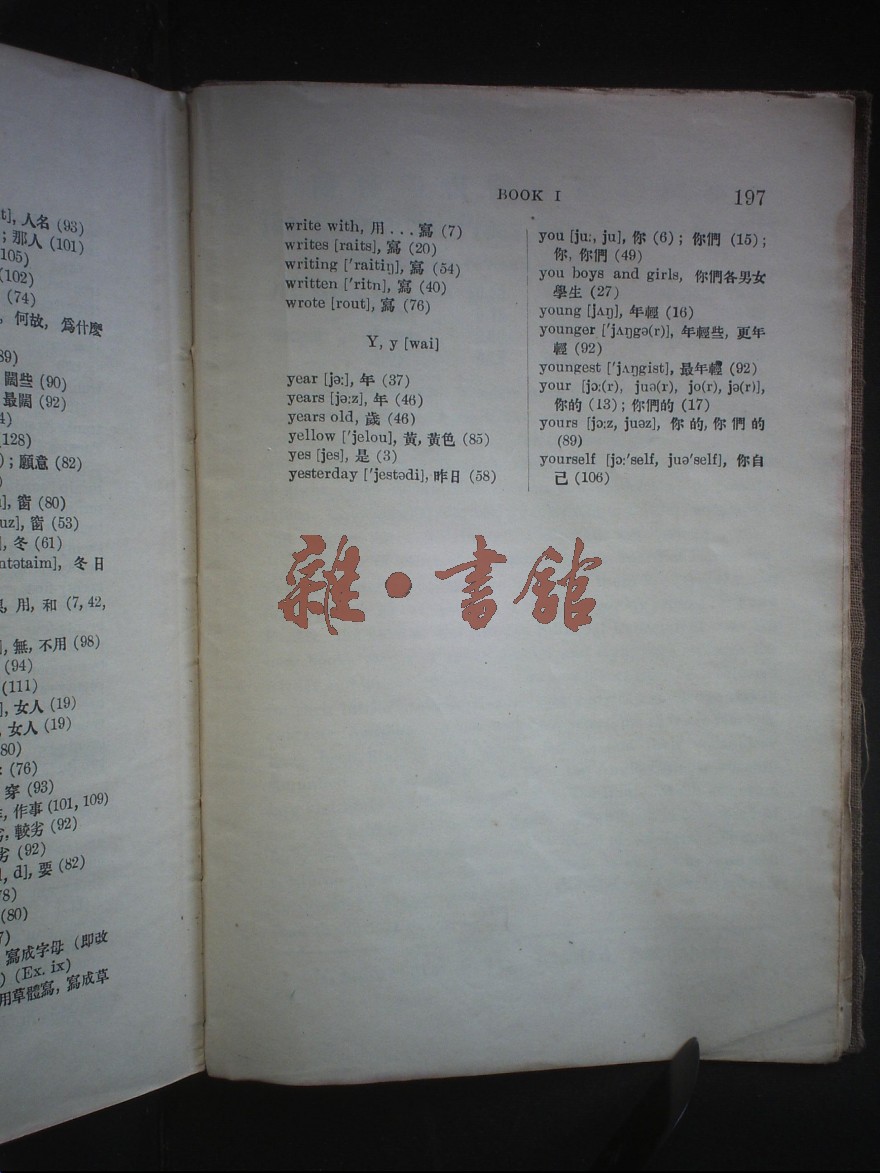 t], 人名 (93)
; 那人 (101)
105)
(102)
(74)
, 何故, 爲什麽
89)
闊些 (90)
最闊 (92)
4)
(128)
) ; 願意 (82)
)
], 窗 (80)
uz], 窗 (53)
], 冬 (61)
ntətaim], 冬日
用, 和 (7, 42,
], 無, 不用 (98)
(94)
(111)
], 女人 (19)
, 女人 (19)
80)
(76)
穿 (93)
, 作事 (101, 109)
劣, 較劣 (92)
劣 (92)
l, d], 要 (82)
78)
(80)
7)
寫成字母 (即改
) (Ex. ix)
用草體寫, 寫成草
BOOK I 197
write with, 用 . . . 寫 (7)
writes [raits], 寫 (20)
writing ['raitiŋ], 寫 (54)
written ['ritn], 寫 (40)
wrote [rout], 寫 (76)
Y, y [wai]
year [jə:], 年 (37)
years [jə:z], 年 (46)
years old, 歲 (46)
yellow ['jelou], 黃, 黃色 (85)
yes [jes], 是 (3)
yesterday ['jestədi], 昨日 (58)
you [ju:, ju], 你 (6) ; 你們 (15) ;
你, 你們 (49)
you boys and girls, 你們各男女
學生 (27)
young [jʌŋ], 年輕 (16)
younger ['jʌŋgə(r)], 年輕些, 更年
輕 (92)
youngest ['jʌŋgist], 最年輕 (92)
your [jɔ:(r), juə(r), jo(r), jə(r)],
你的 (13) ; 你們的 (17)
yours [jɔ:z, juəz], 你的, 你們的
(89)
yourself [jɔ:'self, juə'self], 你自
己 (106)
雜·書館